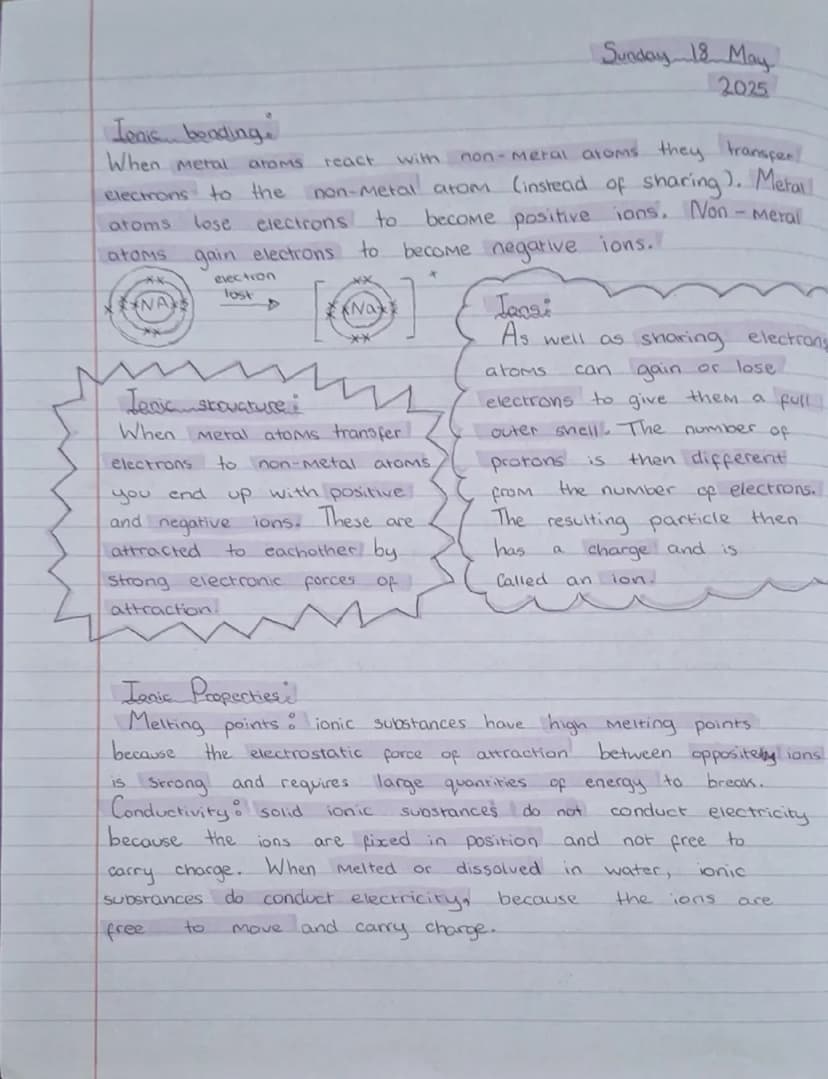 Sunday 18 May
2025
Ionic bonding:
When metal atoms react with non-metal atoms they transfer
electrons to the non-metal atom (instead of sharing). Metal
atoms lose electrons to become positive ions. Non-metal
atoms gain electrons to become negative ions.
NA
electron
lost
Na
+
Ionic structure:
When metal atoms transfer
electrons to non-metal atoms
you end up with positive
and negative ions. These are
attracted to eachother by
strong electronic forces of
attraction.
Ions:
As well as sharing electrons
atoms can gain or lose
electrons to give them a full
outer shell. The number of
protons is then different
from the number of electrons.
The resulting particle then
has a charge and is
called an ion.
Ionic Properties:
Melting points: ionic substances have high melting points
because the electrostatic force of attraction between oppositely ions
is strong and requires large quantities of energy to break.
Conductivity: solid ionic substances do not conduct electricity
because the ions are fixed in position and not free to
carry charge. When melted or dissolved in water, ionic
substances do conduct electricity, because the ions are
free to move and carry charge.